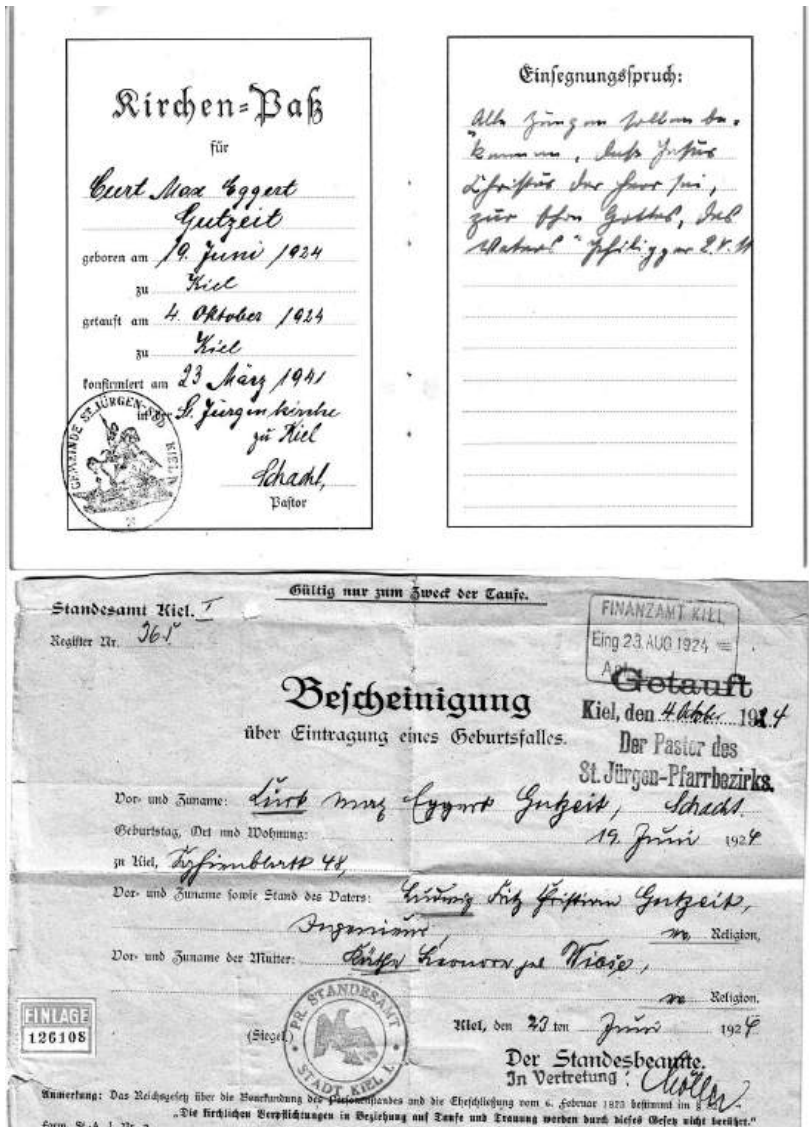 Kirchen=Paß
für
Curt Max Eggert
Gutzeit
geboren am 19. Juni 1924
zu Kiel
getauft am 4. Oktober 1924
zu Kiel
konfirmiert am 23 März 1941
in der St. Jürgenkirche
zu Kiel
Schacht,
Pastor
GEMEINDE ST. JÜRGEN-SÜD KIEL
Einsegnungsspruch:
Alle Zungen sollen be-
kennen, daß Jesus
Christus der Herr sei,
zur Ehre Gottes, des
Vaters" Philipper 2. V. 11
Gültig nur zum Zweck der Taufe.
Standesamt Kiel. I
Register Nr. 365
FINANZAMT KIEL
Eing 23. AUG 1924
Getauft
Kiel, den 4 Oktober 1924
Der Pastor des
St. Jürgen-Pfarrbezirks.
Schacht.
Bescheinigung
über Eintragung eines Geburtsfalles.
Vor- und Zuname: Curt Max Eggert Gutzeit,
Geburtstag, Ort und Wohnung: 19. Juni 1924
zu Kiel, 48,
Vor- und Zuname sowie Stand des Vaters: Ludwig Fritz Christian Gutzeit,
Ingenieur, Religion,
Vor- und Zuname der Mutter: Käthe Leonore geb Wiese,
Religion.
EINLAGE
126108
(Siegel)
PR. STANDESAMT
STADT KIEL I.
Kiel, den 23 ten Juni 1924
Der Standesbeamte.
In Vertretung: Möller
Anmerkung: Das Reichsgesetz über die Beurkundung des Personenstandes und die Eheschließung vom 6. Februar 1875 bestimmt im §
„Die kirchlichen Verpflichtungen in Beziehung auf Taufe und Trauung werden durch dieses Gesetz nicht berührt."
Form. St.-A. I. Nr.